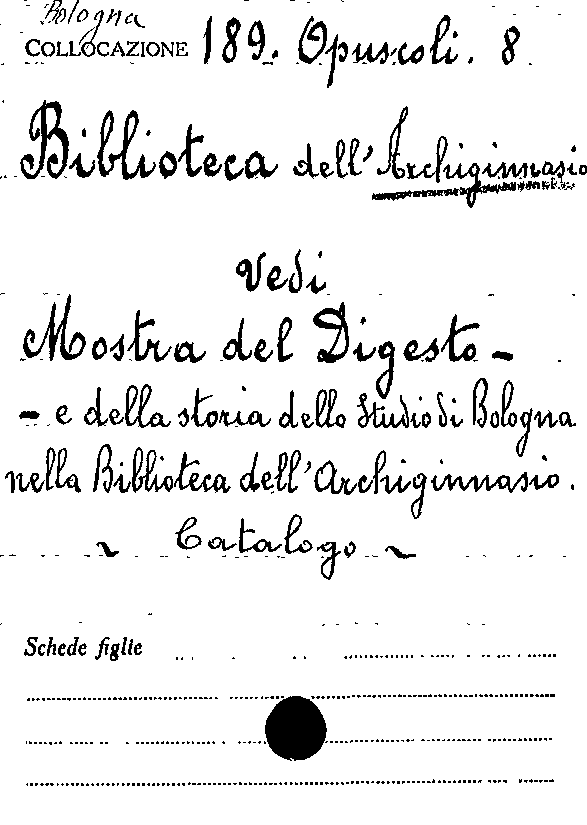 Bologna
COLLOCAZIONE 189. Opuscoli. 8
Biblioteca dell'Archiginnasio
Vedi
Mostra del Digesto -
- e della storia dello Studio di Bologna
nella Biblioteca dell'Archiginnasio.
~ Catalogo ~
Schede figlie